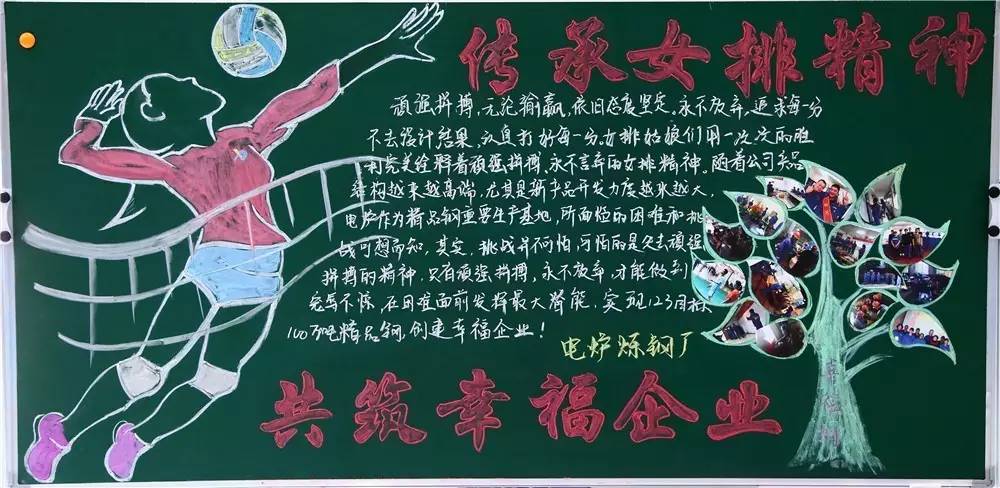 传承女排精神
顽强拼搏,无论输赢,依旧态度坚定。永不放弃,追求每一分
不去设计结果,认真打好每一分,女排姑娘们用一次次的胜
利完美诠释着顽强拼搏,永不言弃的女排精神。随着公司产品
结构越来越高端,尤其是新产品开发力度越来越大,
电炉作为精品钢重要生产基地,所面临的困难和挑
战可想而知,其实,挑战并不可怕,可怕的是失去顽强
拼搏的精神,只有顽强拼搏,永不放弃,才能做到
宠辱不惊,在困难面前发挥最大潜能,实现123目标
100万吨精品钢,创建幸福企业!
电炉炼钢厂
共筑幸福企业